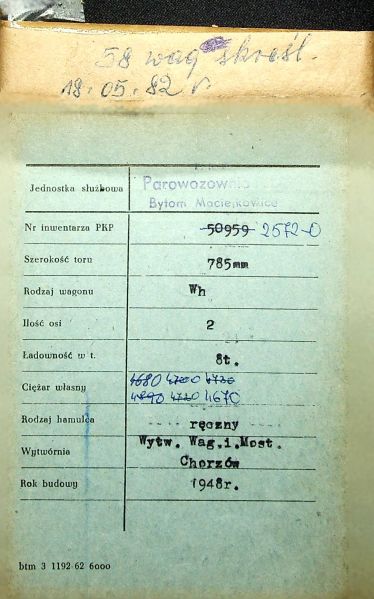 58 wag skreśl.
18.05.82 r
Jednostka służbowa Parowozownia
Bytom Maciejkowice
Nr inwentarza PKP 50959 2572-0
Szerokość toru 785mm
Rodzaj wagonu Wh
Ilość osi 2
Ładowność w t. 8t.
4680 4700 4730
Ciężar własny 4890 4720 4670
Rodzaj hamulca ręczny
Wytwórnia Wytw. Wag.i.Most.
Chorzów
Rok budowy 1948r.
btm 3 1192 62 6000